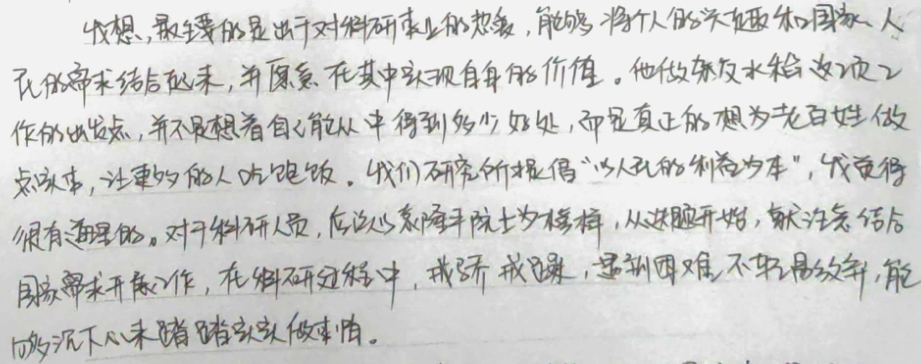 我想,最主要的是出于对科研事业的热爱,能够将个人的兴趣和国家、人
民的需求结合起来,并愿意在其中实现自身的价值。他做杂交水稻这项工
作的出发点,并不是想着自己能从中得到多少好处,而是真正的想为老百姓做
点实事,让更多的人吃饱饭。我们研究所提倡“以人民的利益为本”,我觉得
很有道理的。对于科研人员,应该以袁隆平院士为榜样,从选题开始,就注意结合
国家需求开展工作,在科研过程中,戒骄戒躁,遇到困难不轻易放弃,能
够沉下心来踏踏实实做事情。